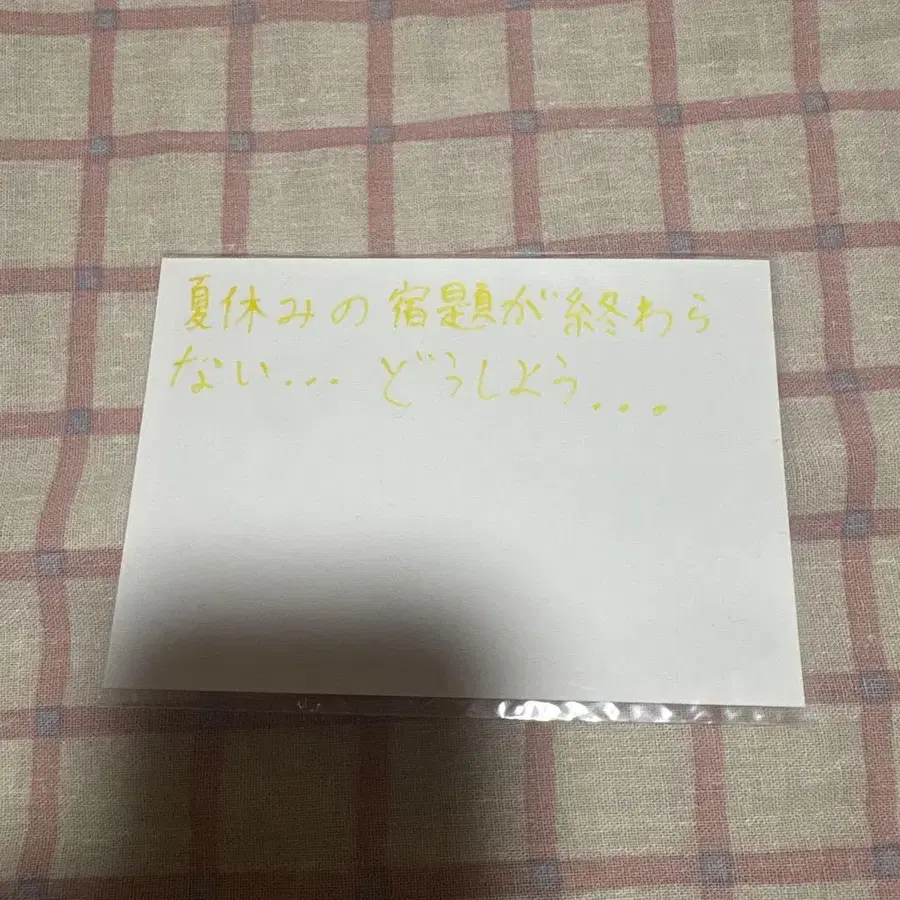 夏休みの宿題が終わら
ない... どうしよう...